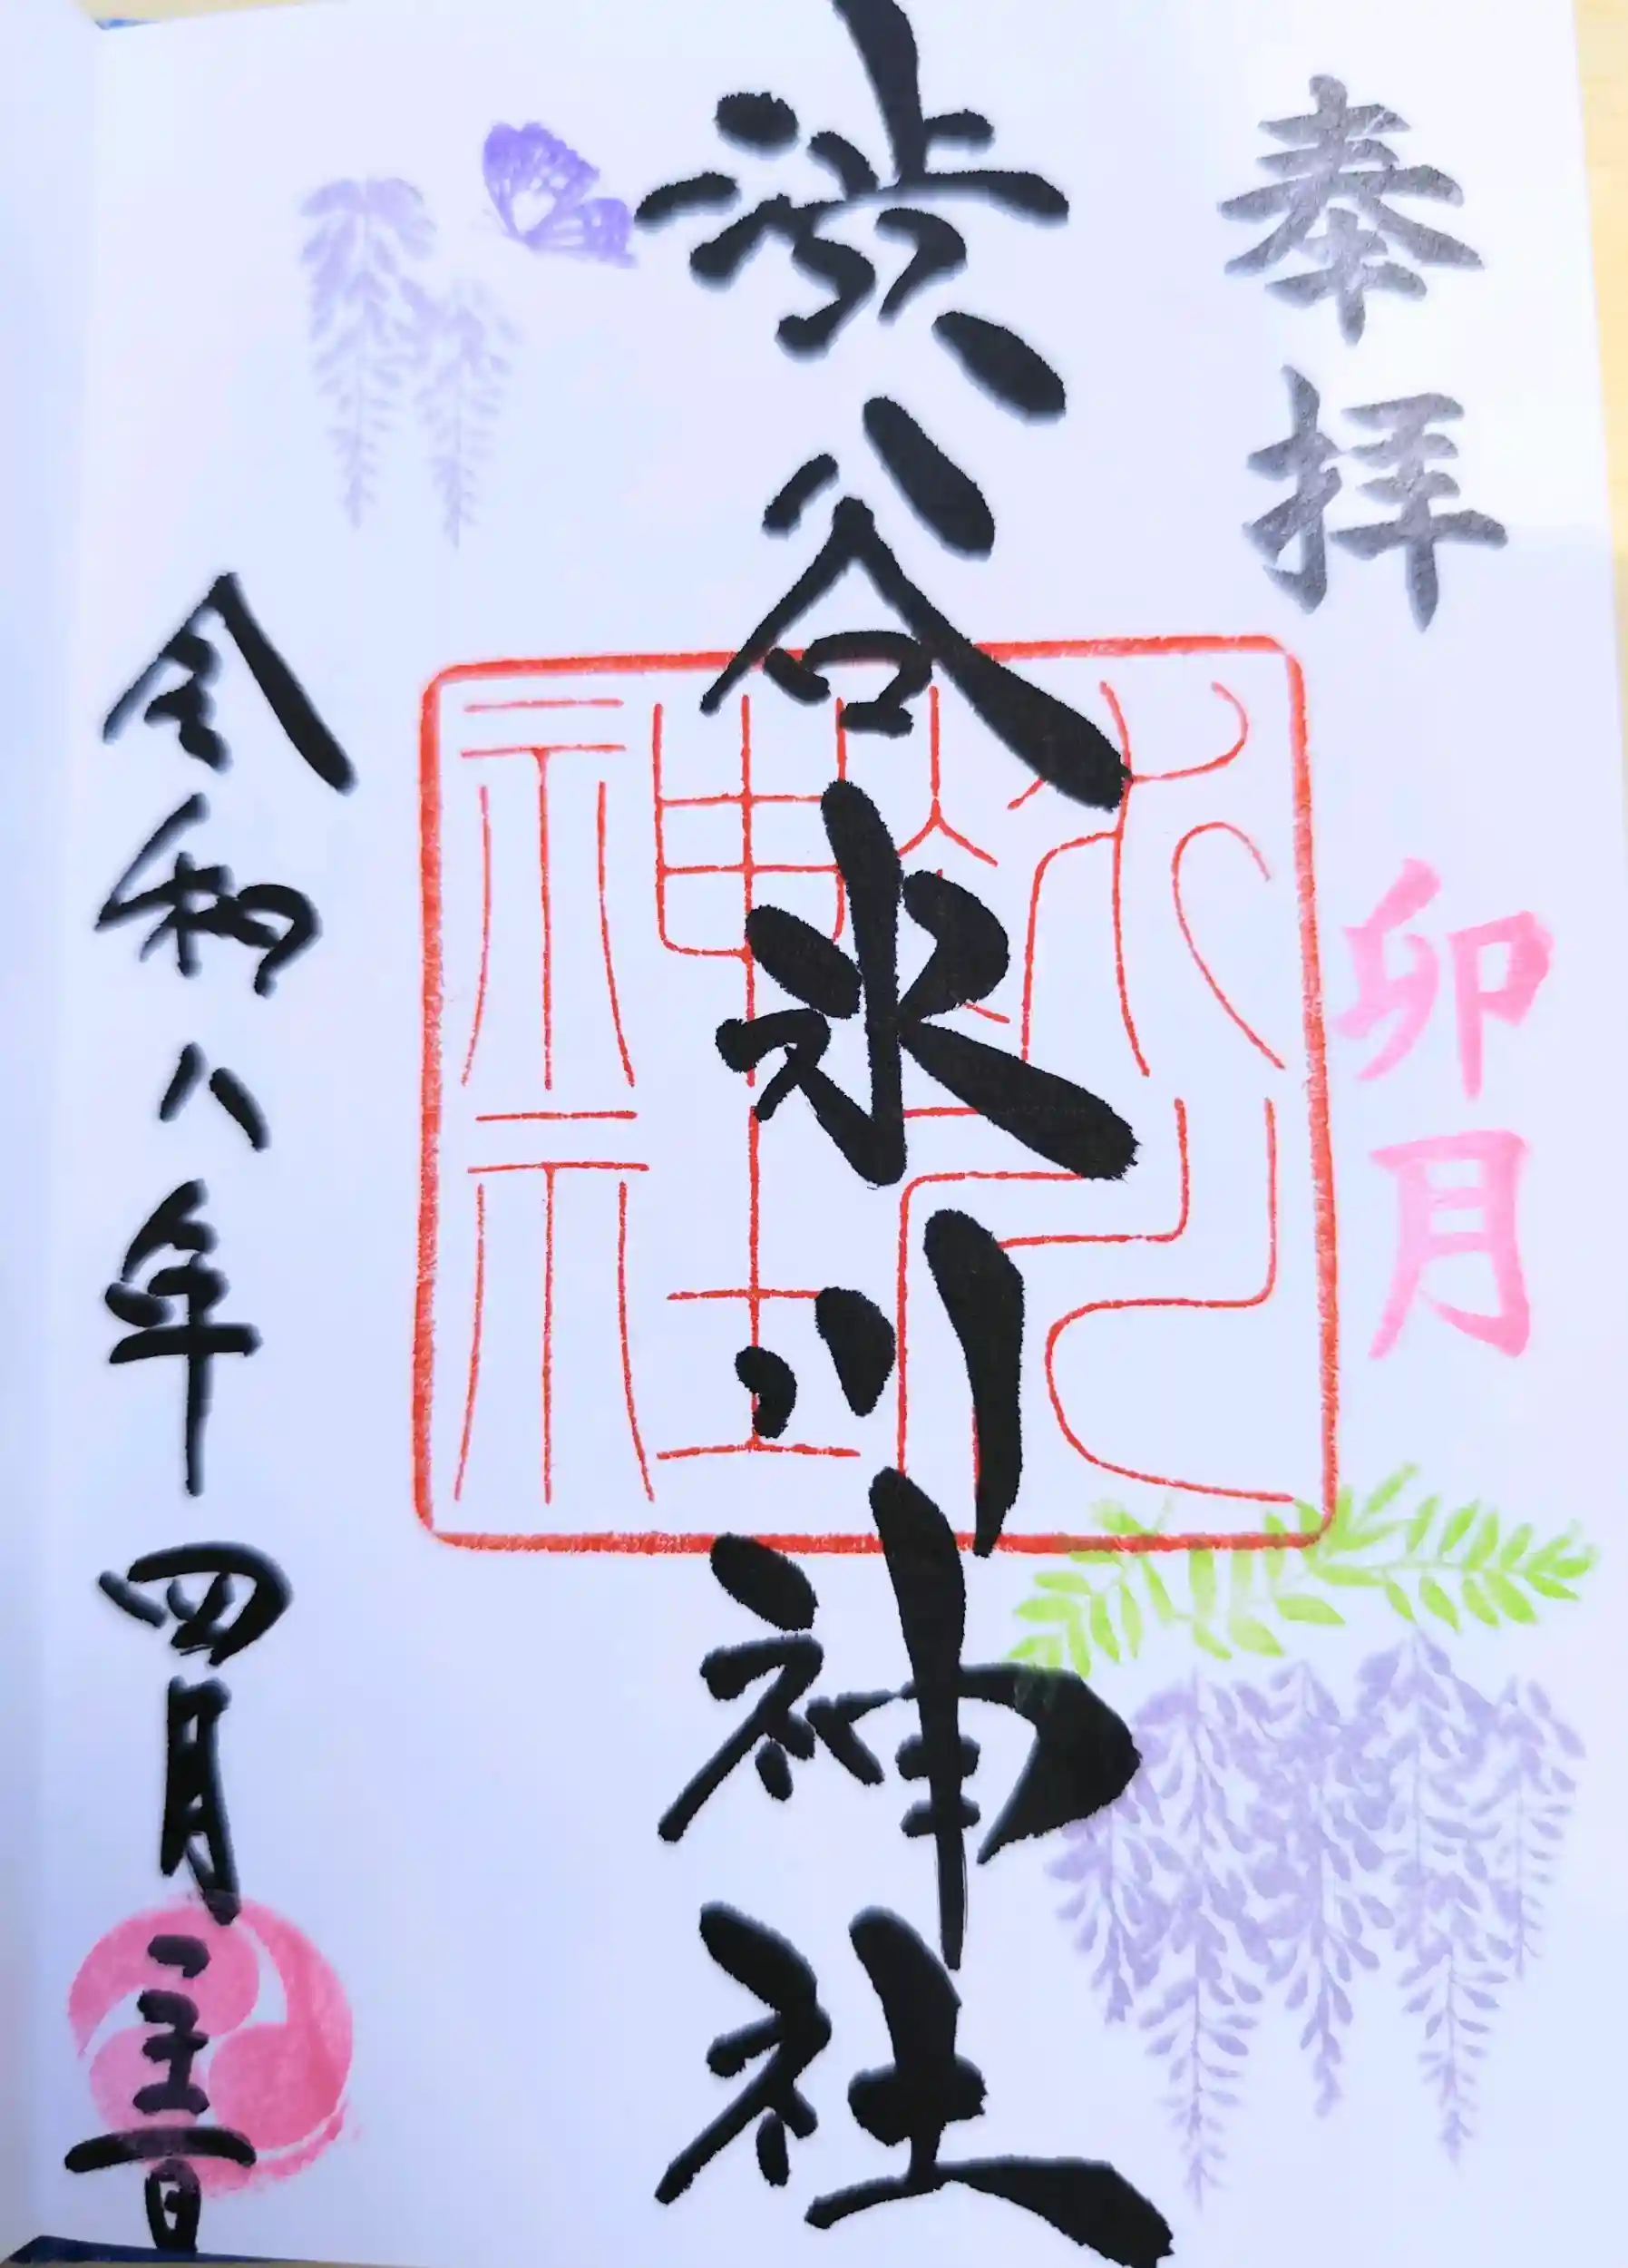 奉拝
卯月
渋谷氷川神社
氷川
神社
令和八年四月二十二日